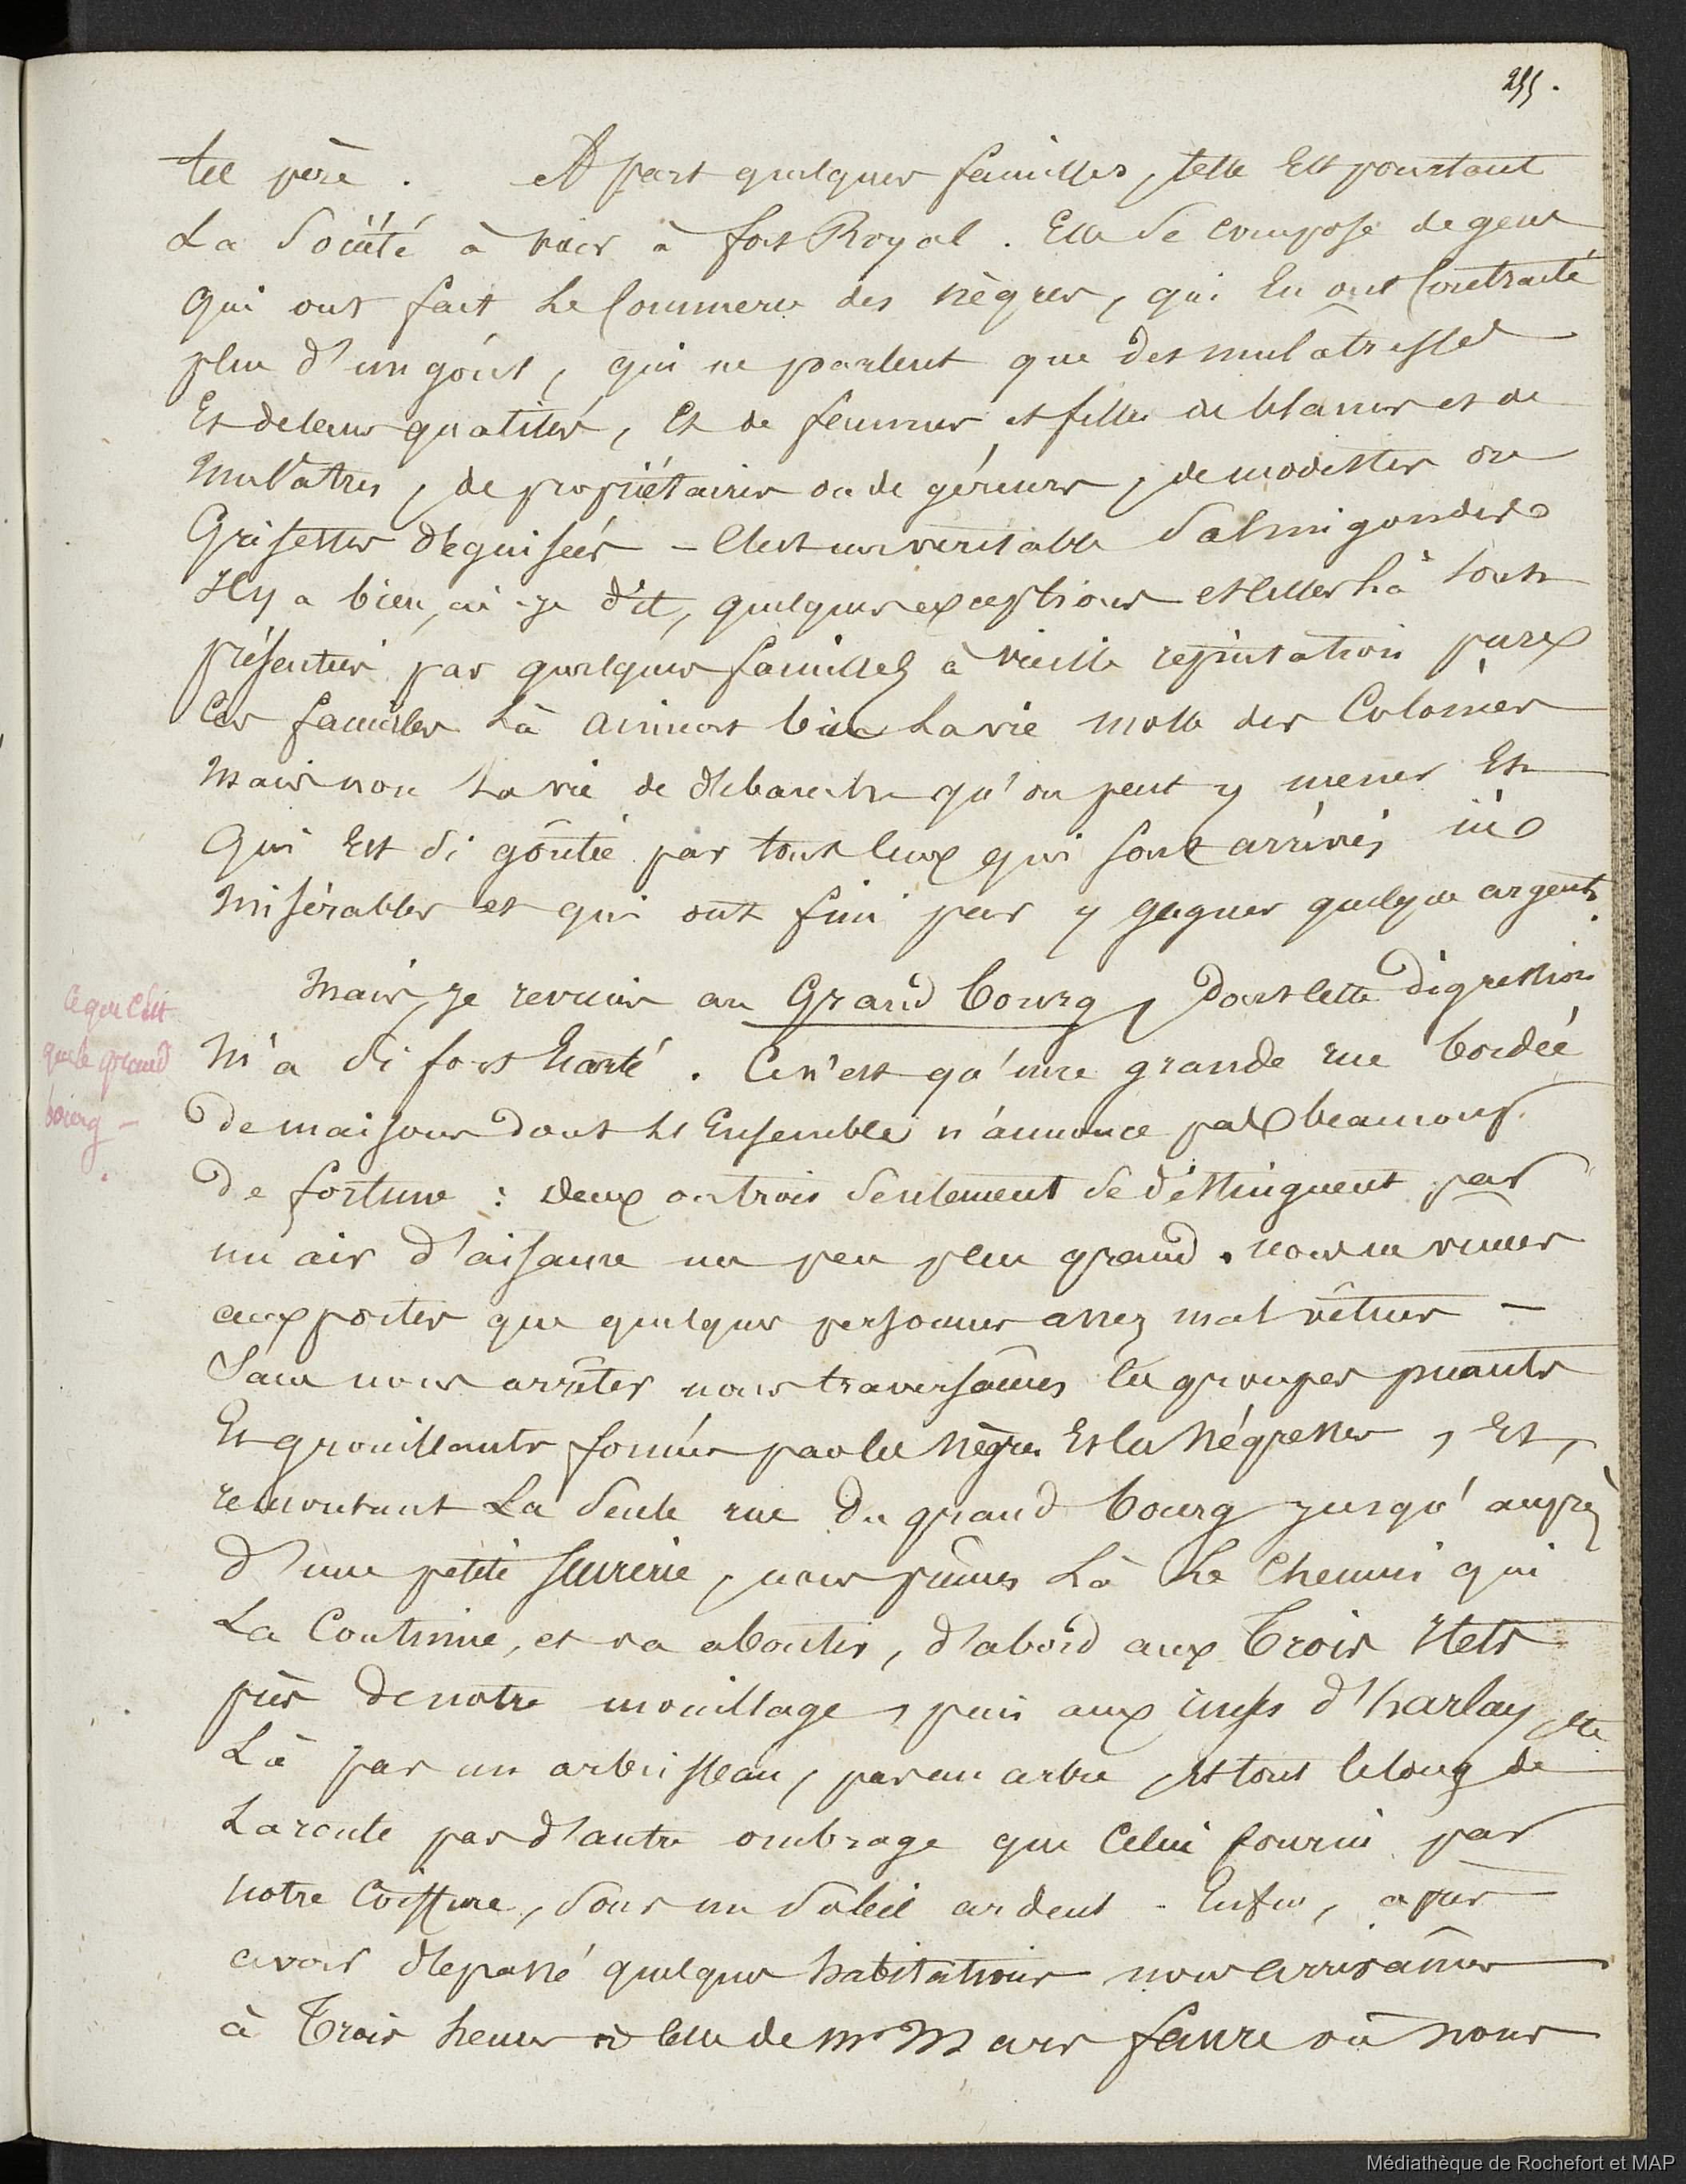 255.
tel père. A part quelques familles, telle est pourtant
La Société à voir à fort Royal. Elle se compose de gens
qui ont fait le Commerce des nègres, qui en ont Contracté
plus d'un goût, qui ne parlent que des mulâtresses
Et de leurs qualités, Et de femmes et filles de blancs et de
Mulâtres, de propriétaires ou de géreurs, de modistes ou
Grisettes déguisées - C'est un veritable Salmigondis
Il y a bien, ai-je dit, quelques exceptions et elles là sont
présentées par quelques familles à vieille réputation pure
Ces familles là aiment bien la vie molle des Colonies
Mais non la vie de débauche qu'on peut y mener Et
Qui Est si goûtée par tous ceux qui sont arrivés ici
misérables et qui ont fini par y gagner quelque argent.
Mais je reviens au Grand bourg, dont cette digression
M'a si fort Ecarté. Ce n'est qu'une grande rue bordée
De maisons dont l'Ensemble n'annonce pas beaucoup
De fortune : deux ou trois seulement se distinguent par
un air d'aisance un peu plus grand. nous ne vimes
aux portes que quelques personnes assez mal vêtues -
Sans nous arrêter nous traversâmes les groupes puants
Et grouillants formés par les nègres Et les négresses, Et,
remontant La Seule rue du grand bourg jusqu'auprès
d'une petite sucrerie, nous prîmes Là Le Chemin qui
La Continue, et va aboutir, d'abord aux Trois Ilets
près de notre mouillage, puis aux d'harlay, etc
Là pas un arbrisseau, pas un arbre, et tout le long de
La route pas d'autre ombrage que Celui fourni par
notre Coiffure, Sous un Soleil ardent - Enfin, après
avoir dépassé quelques habitations nous arrivâmes
à Trois heures à celle de Mr Marc faure où nous
Ce que c'est
que le grand
bourg -
Médiathèque de Rochefort et MAP